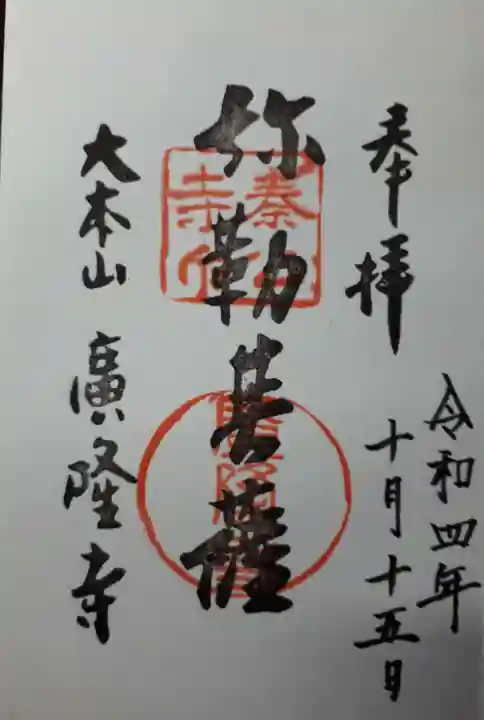 奉拝
令和四年
十月十五日
弥勒菩薩
大本山 廣隆寺